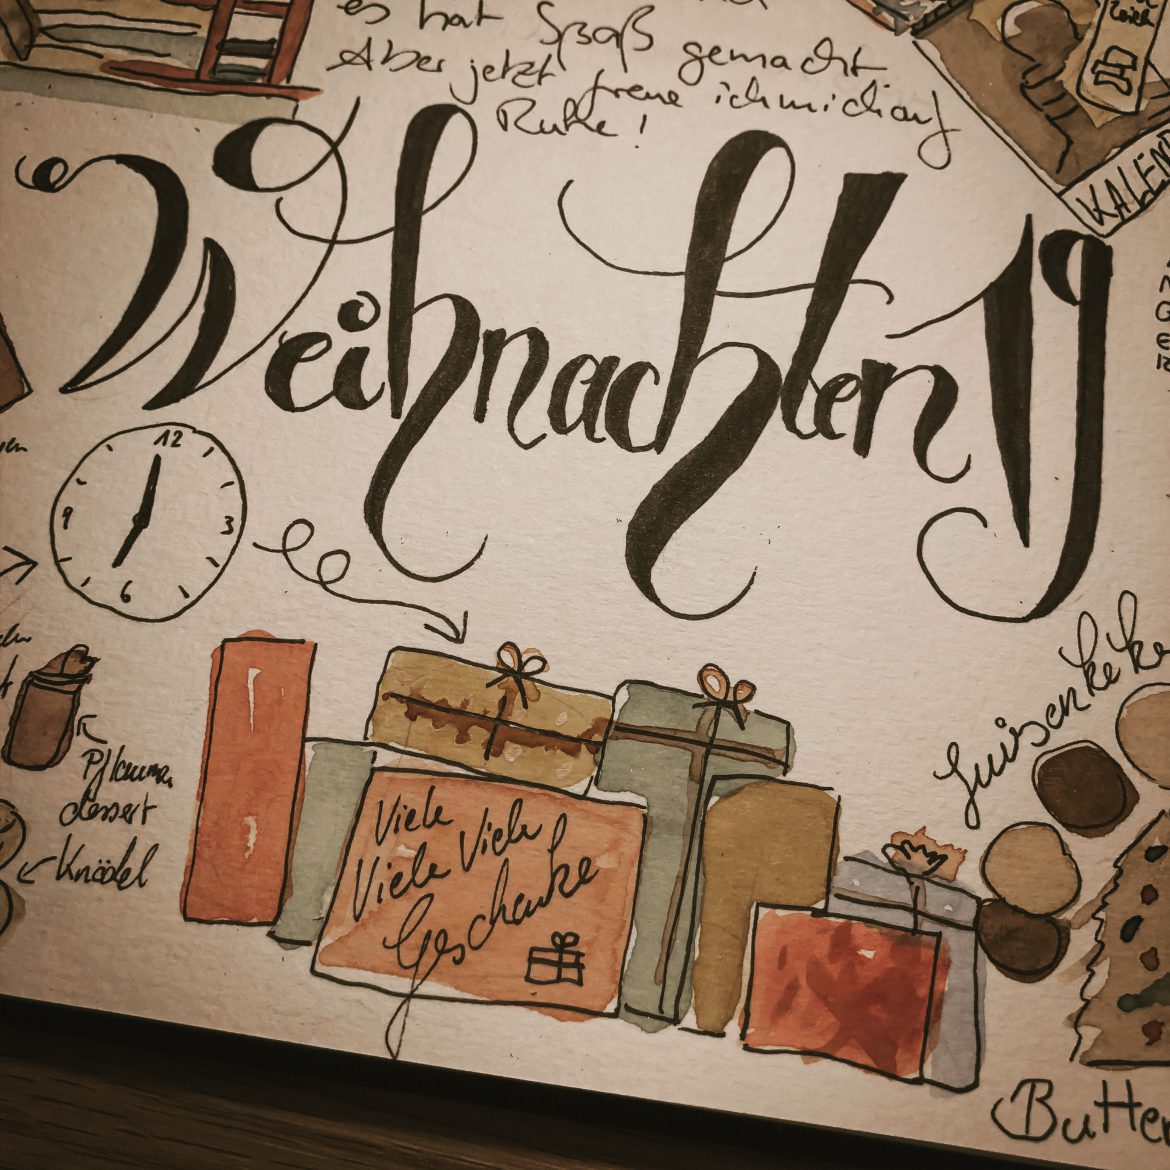 es hat Spaß gemacht
Aber jetzt freue ich mich auf
Ruhe!
KALEN
Weihnachten 19
12
9
3
6
Pflaumen
dessert
Knödel
Viele
Viele Viele
Geschenke
Luisenkeke
Butter